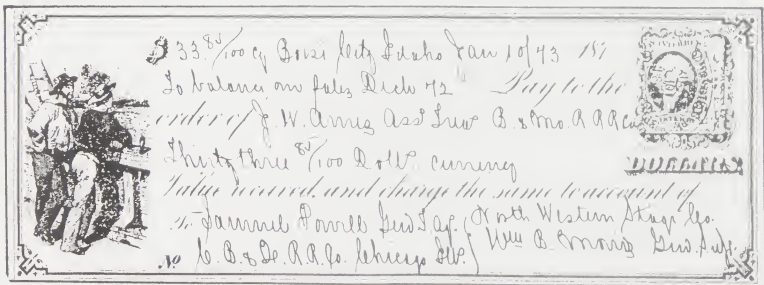 $33.85/100 cy Boise City Idaho Jan 10/73 187
To balance on sales Dech 72 Pay to the
order of J. W. Ames Asst Treas B. & Mo. R R R Co
Thirty three 85/100 Dolls currency
Value received, and charge the same to account of
To Samuel Powell Genl Tag. North Western Stage Co.
C. B. & Q. R.R. Co. Chicago Ills. Wm B. Morris Gen. Supt.
No